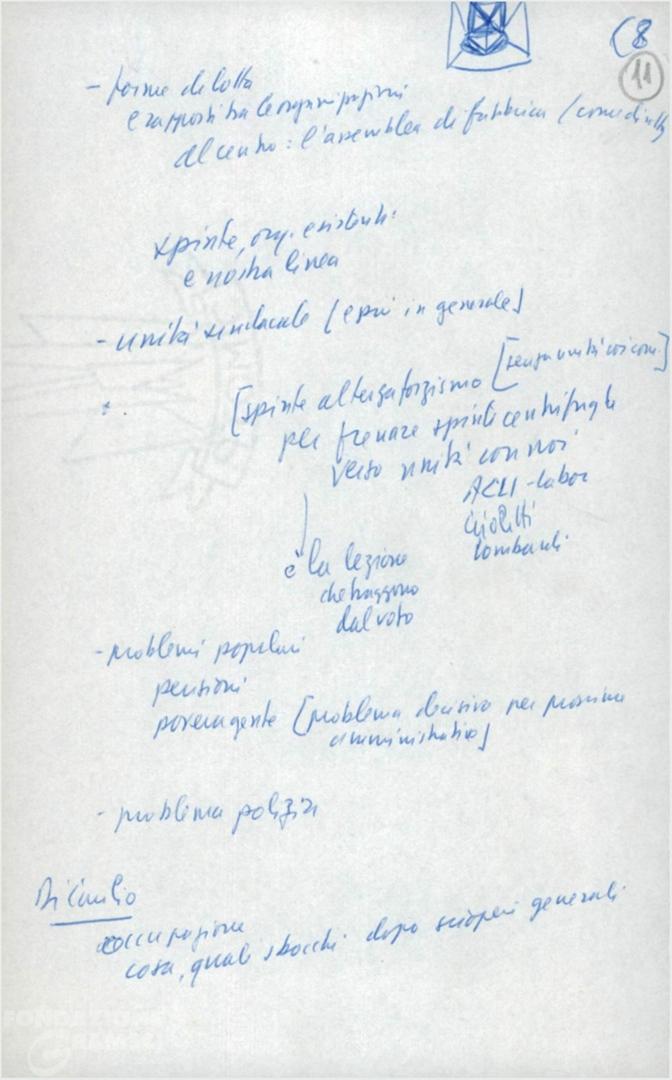 (8
11
- forme di lotta
e rapporti tra le organizzazioni
al centro: l'assemblea di fabbrica (come
spinte, org. esistenti
e nostra linea
- unità sindacale [e più in generale]
[spinte al terzaforzismo [senza unità coi com.]
per frenare spinte centrifughe
verso unità con noi
ACLI-Labor
Giolitti
Lombardi
è la lezione
che traggono
dal voto
- problemi popolari
pensioni
povera gente [problema decisivo per prossime
amministrative]
- problema polizia
Di Giulio
occupazione
cosa, quali sbocchi dopo scioperi generali
FONDAZIONE
GRAMSCI